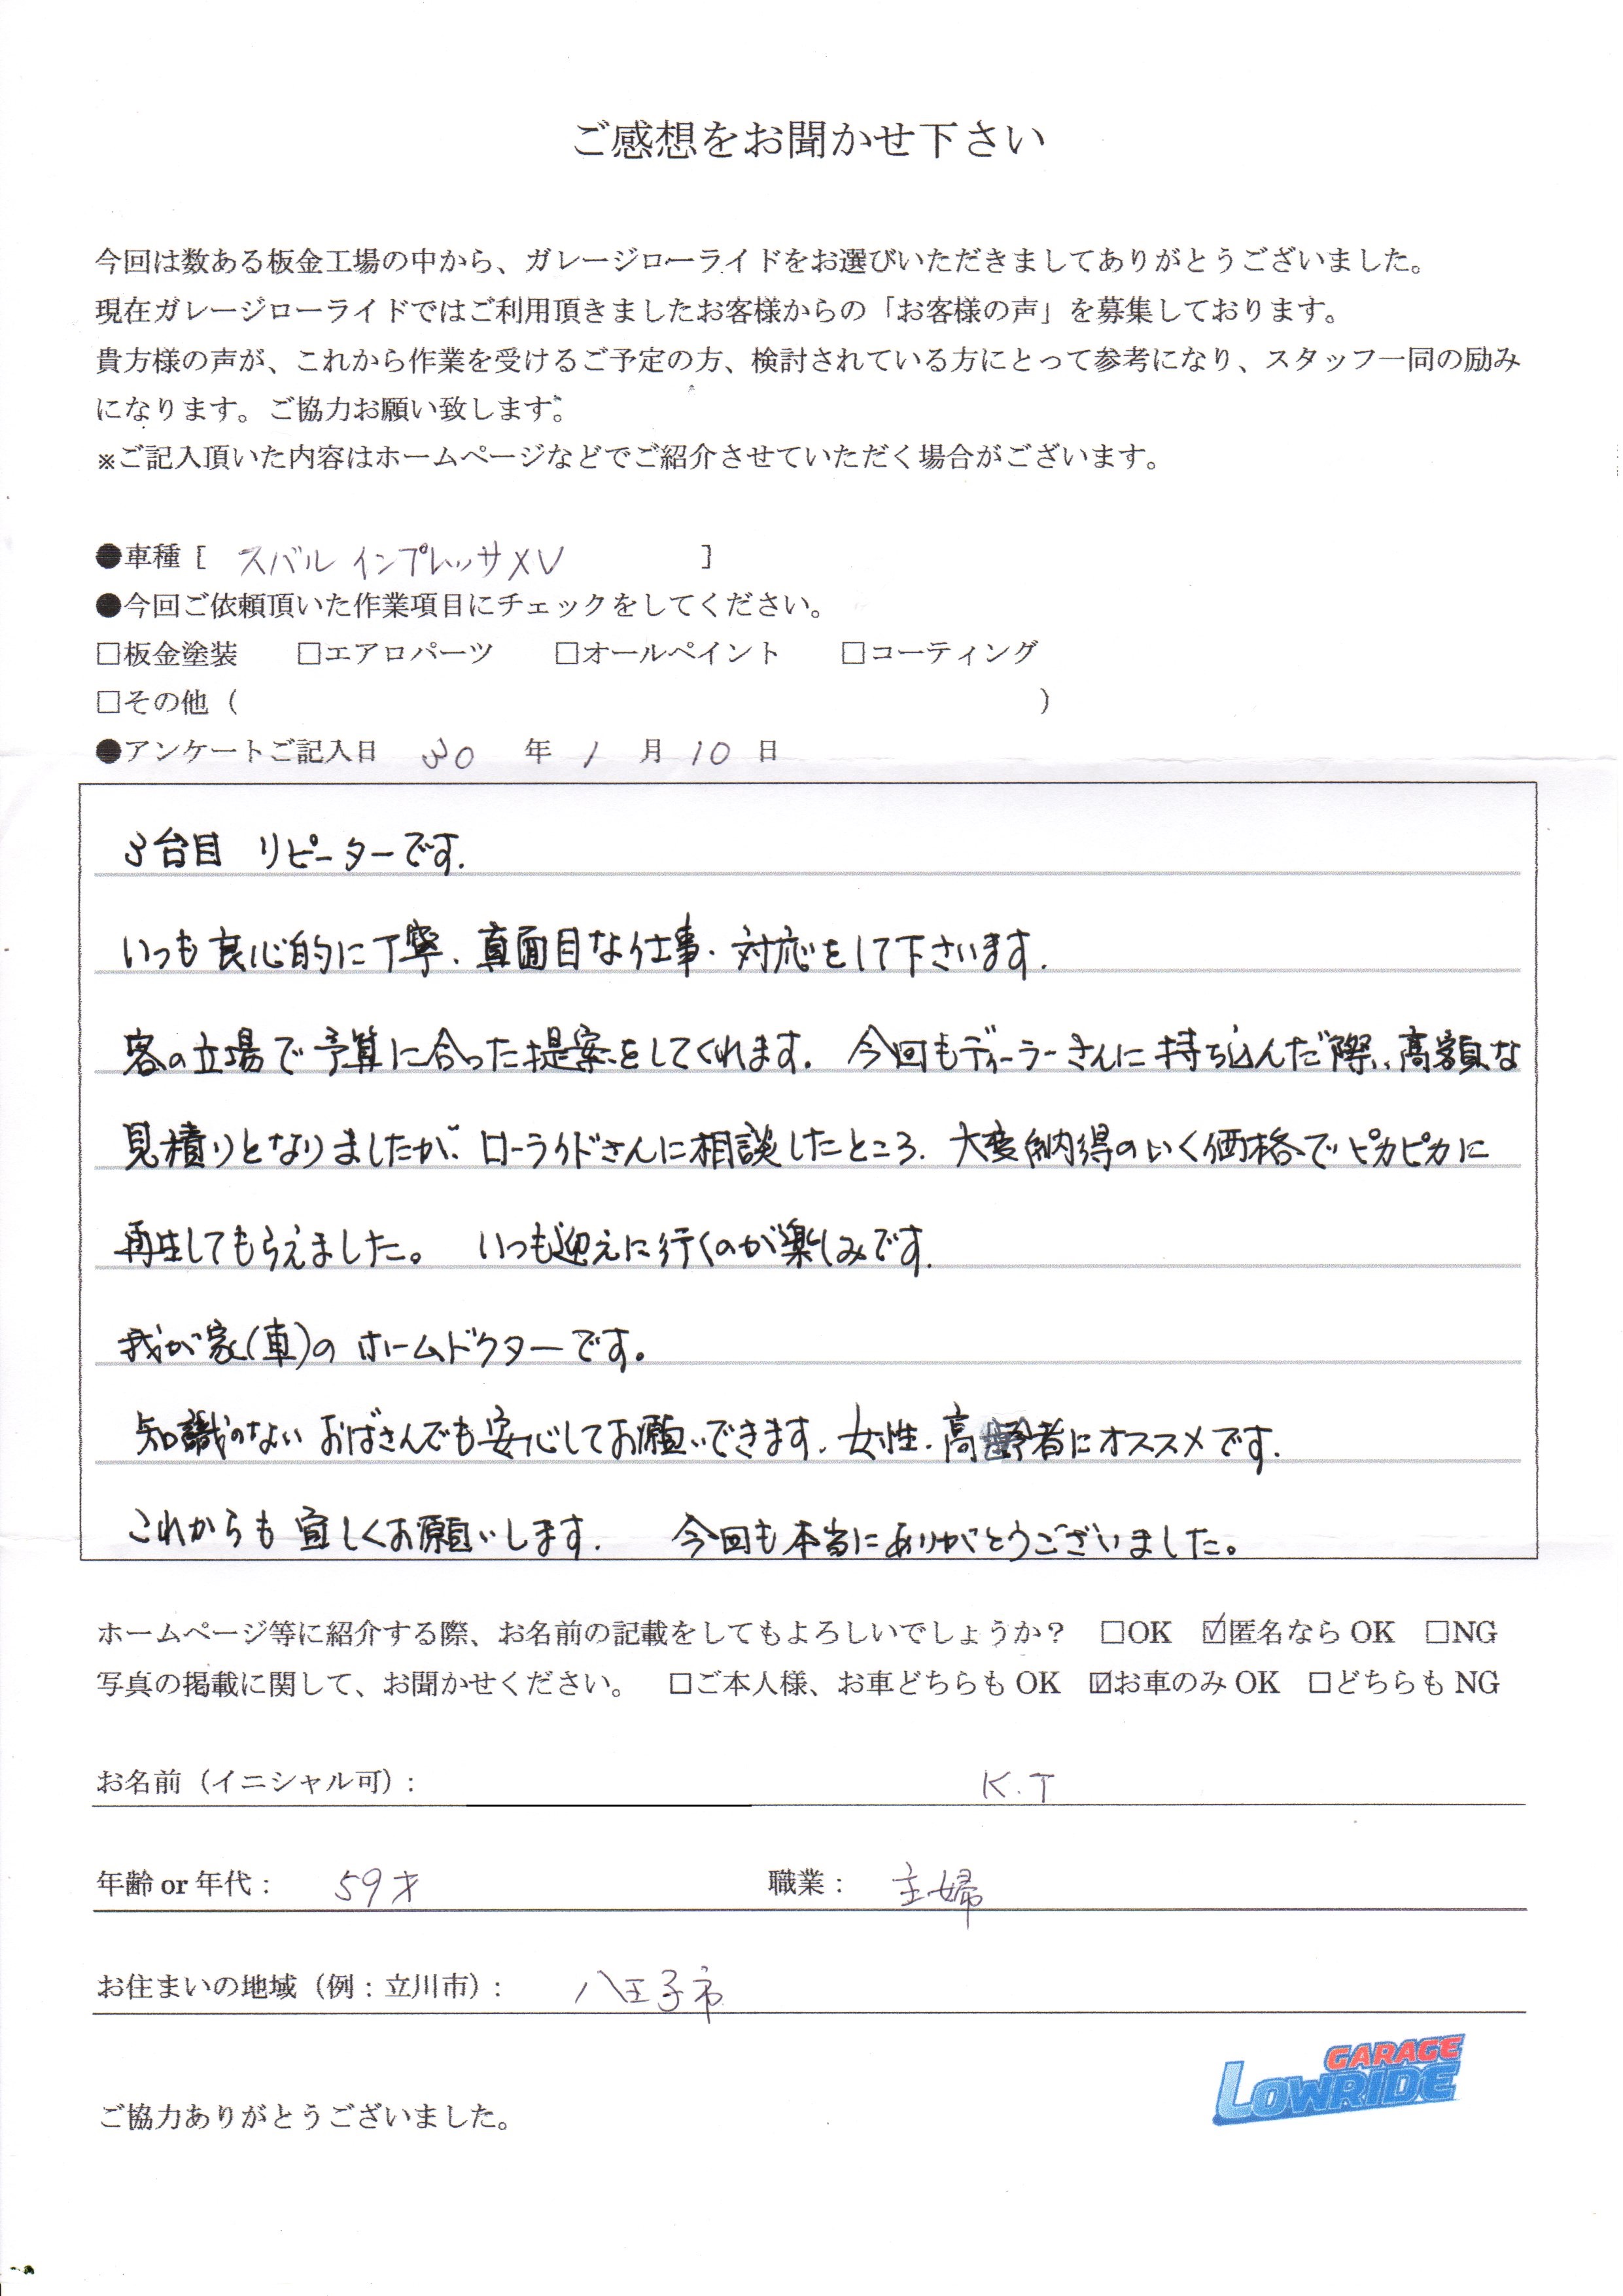 ご感想をお聞かせ下さい
今回は数ある板金工場の中から、ガレージローライドをお選びいただきましてありがとうございました。
現在ガレージローライドではご利用頂きましたお客様からの「お客様の声」を募集しております。
貴方様の声が、これから作業を受けるご予定の方、検討されている方にとって参考になり、スタッフ一同の励み
になります。ご協力お願い致します。
※ご記入頂いた内容はホームページなどでご紹介させていただく場合がございます。
●車種 [ スバル インプレッサXV ]
●今回ご依頼頂いた作業項目にチェックをしてください。
□板金塗装 □エアロパーツ □オールペイント □コーティング
□その他（ ）
●アンケートご記入日 30 年 1 月 10 日
3台目 リピーターです.
いつも良心的に丁寧、真面目な仕事・対応をして下さいます.
客の立場で予算に合った提案をしてくれます. 今回もディーラーさんに持ち込んだ際、高額な
見積りとなりましたが、ローライドさんに相談したところ、大変納得のいく価格でピカピカに
再生してもらえました。 いつも迎えに行くのが楽しみです.
我が家(車)の ホームドクターです。
知識のない おばさんでも安心してお願いできます. 女性、高齢者にオススメです.
これからも宜しくお願いします. 今回も本当にありがとうございました。
ホームページ等に紹介する際、お名前の記載をしてもよろしいでしょうか？ □OK ☑匿名なら OK □NG
写真の掲載に関して、お聞かせください。 □ご本人様、お車どちらも OK ☑お車のみ OK □どちらも NG
お名前（イニシャル可）: K.T
年齢 or 年代 : 59才 職業 : 主婦
お住まいの地域（例：立川市）: 八王子市
GARAGE
LOWRIDE
ご協力ありがとうございました。